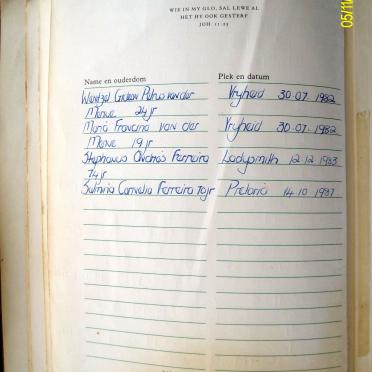 WIE IN MY GLO, SAL LEWE AL
HET HY OOK GESTERF
JOH. 11:25
Name en ouderdom Plek en datum
Wentzel Gideon Petrus van der Vryheid 30.07.1982
Merwe 24 jr
Maria Francina van der Vryheid 30.07.1982
Merwe 19 jr
Stephanus Andries Ferreira Ladysmith 12.12.1983
74 jr
Ferreira 70 jr Pretoria 14.10.1987
05/11/